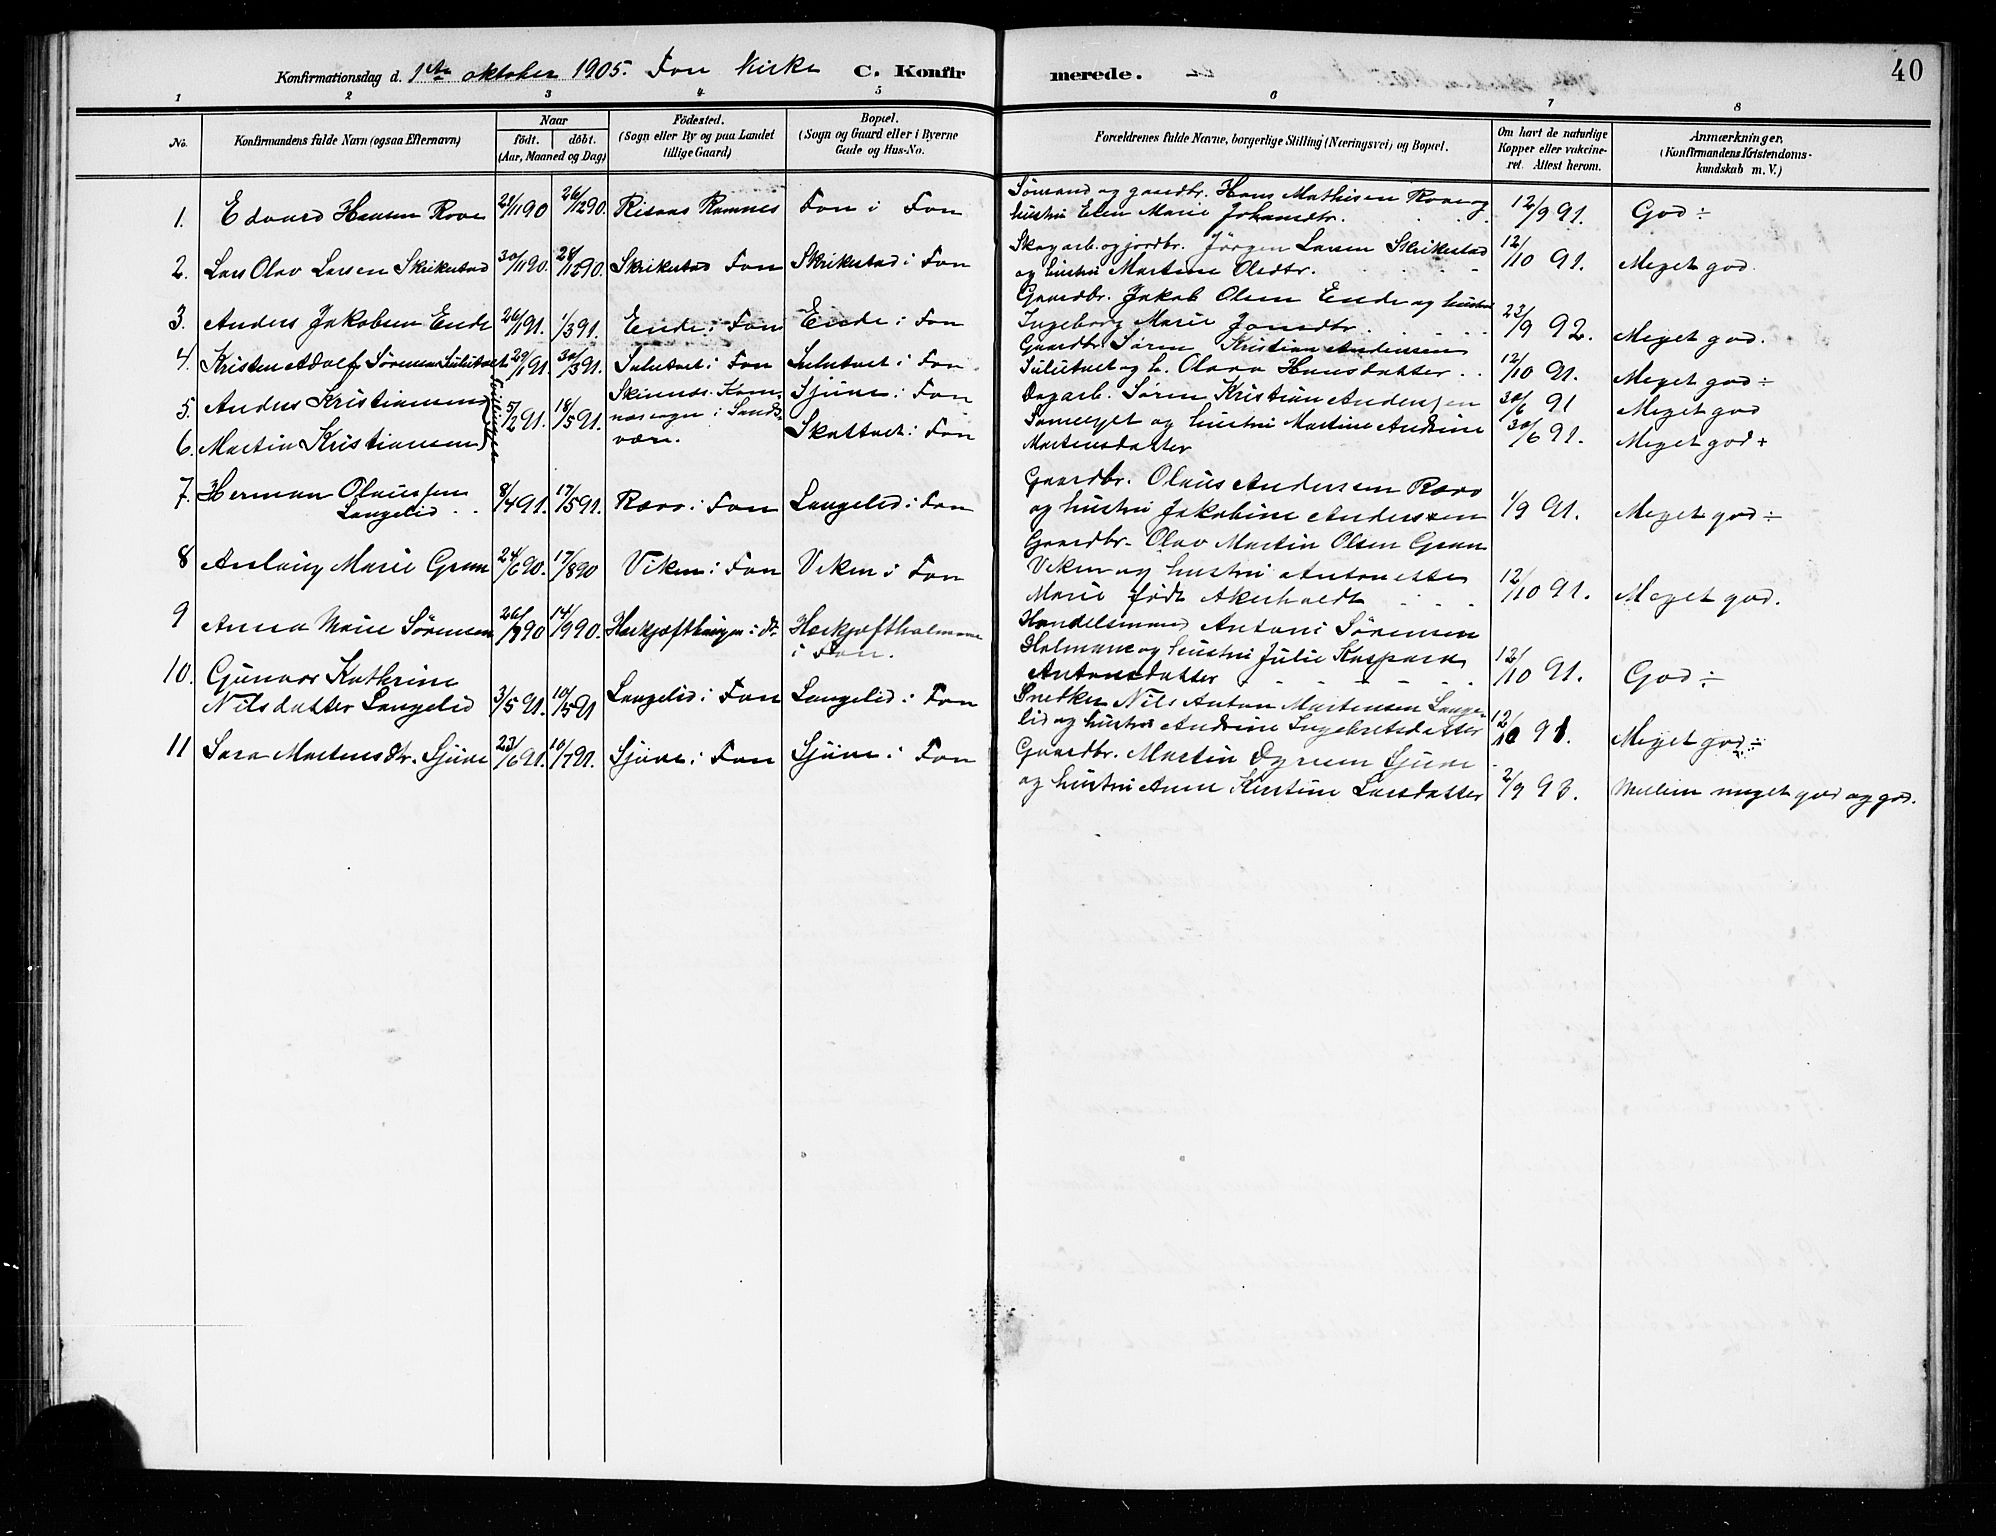 Konfirmationsdag d. 1ste oktober 1905. Fon kirke C. Konfirmerede. 40
1 2 3 4 5 6 7 8
No. Konfirmandens fulde Navn (ogsaa Efternavn) Naar födt. döbt. (Aar, Maaned og Dag) Födested. (Sogn eller By og paa Landet tillige Gaard) Bopæl. (Sogn og Gaard eller i Byerne Gade og Hus-No. Forældrenes fulde Navne, borgerlige Stilling (Næringsvei) og Bopæl. Om havt de naturlige Kopper eller vakcineret. Attest herom. Anmærkninger, (Konfirmandens Kristendomskundskab m. V.)
1. Edvard Hansen Rove 23/11 90 26/12 90. Ramnes Fon i Fon Sömand og gaardbr. Hans Mathisen Rove og
hustru Elen Marie Johansdtr. 12/9 91. God ÷
2. Lars Olav Larsen Skrikestad 30/11 90. 28/12 90. Skrikestad Fon Skrikestad i Fon Skogarb. og jordbr. Jörgen Larsen Skrikestad
og hustru Martine Olsdtr. 12/10 91. Meget god.
3. Anders Jakobsen Ende 26/1 91. 1/3 91. Ende i Fon Ende i Fon Gaardbr. Jakob Olsen Ende og hustru
Ingeborg Marie Jonsdtr. 23/9 92. Meget god.
4. Kristen Adolf Sörensen Sulutvet 29/1 91. 30/3 91. Sulutvet i Fon Sulutvet i Fon. Gaardbr. Sören Kristian Andersen
Sulutvet og h. Olava Hansdatter 12/10 91. Meget god ÷
5. Anders Kristiansen Tvillinger 5/2 91. 18/5 91. Sjüve i Fon Dagarb. Sören Kristian Andersen 30/6 91 Meget god
6. Martin Kristiansen i Sandsvær. Skattvet i Fon og hustru Martine Andrine
Martensdatter 30/6 91. Meget god +
7. Herman Olaussen
Langelid 8/4 91. 17/5 91. Rævo i Fon Langelid i Fon Gaardbr. Olaus Andersen Rævo
og hustru Jakobine Anderssen 1/9 91. Meget god ÷
8 Aslaug Marie Gran 24/6 90. 17/8 90 Viken i Fon Viken i Fon Gaardbr. Olav Martin Olsen Gran
Viken og hustru Antonette
Marie födt Akerholdt 12/10 91. Meget god.
9 Anna Marie Sörensen 14/9 90. i Fon. Handelsmand Anton Sörensen
Holmane og hustru Julie Kaspara
Antonsdatter 12/10 91. God ÷
10. Gunvor Kathrine
Nilsdatter Langelid 3/5 91. 10/5 91 Langelid i Fon Langelid i Fon Snedker Nils Anton Martensen Langelid
og hustru Andrine Ingebretsdatter 12/10 91. Meget god ÷
11 Sara Martensdtr. Sjüve 23/6 91. 10/7 91. Sjüve i Fon Sjüve i Fon Gaardbr. Martin Sjüve
og hustru Anne Kirstine Larsdatter 2/9 93. Mellem meget god og god.